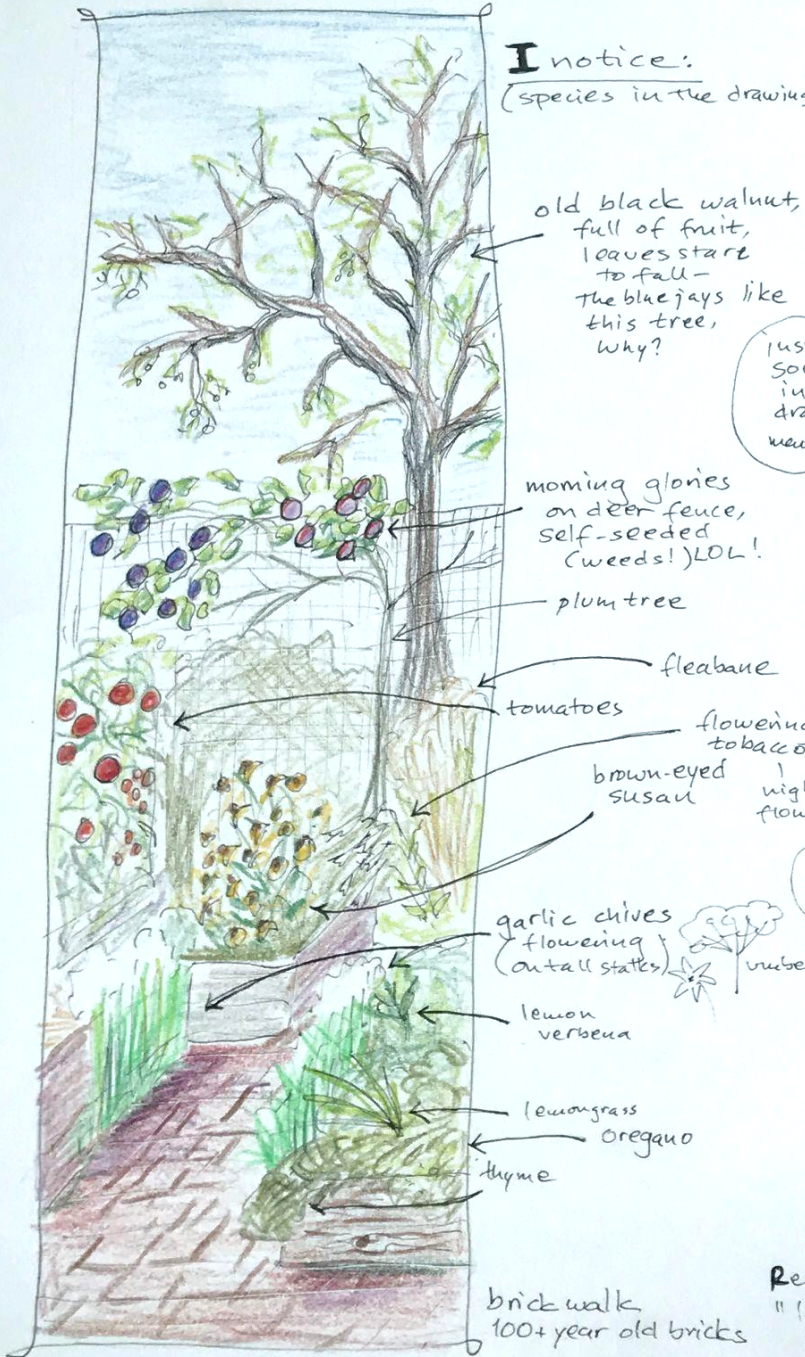 I notice:
(species in the drawing
old black walnut,
full of fruit,
leaves start
to fall-
the blue jays like
this tree,
why?
in
morning glories
on deer fence,
self-seeded
(weeds!) LOL!
plum tree
fleabane
tomatoes
flowering
tobacco
brown-eyed
susan
garlic chives
(flowering)
(on tall stalks)
lemon
verbena
lemongrass
oregano
thyme
brick walk
100+ year old bricks